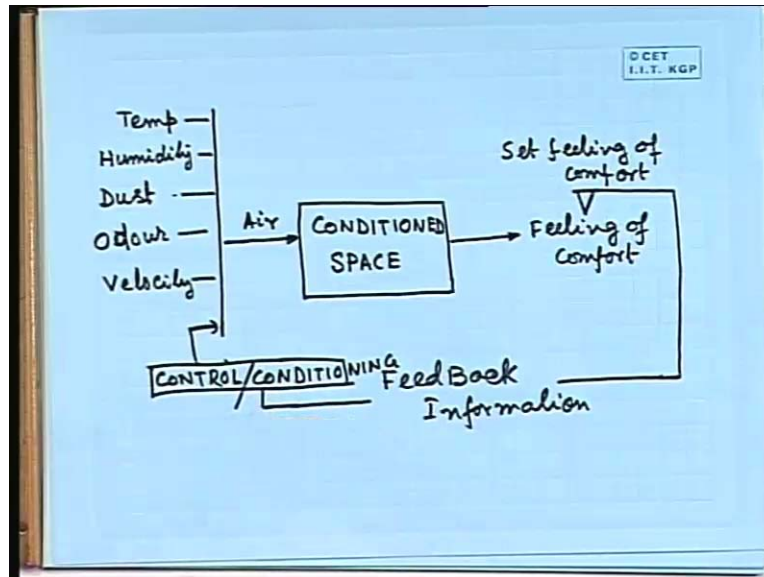 © CET
I.I.T. KGP
Temp
Humidity
Dust
Odour
Velocity
Air
CONDITIONED
SPACE
Set feeling of
comfort
Feeling of
comfort
CONTROL/CONDITIONING
FeedBack
Information